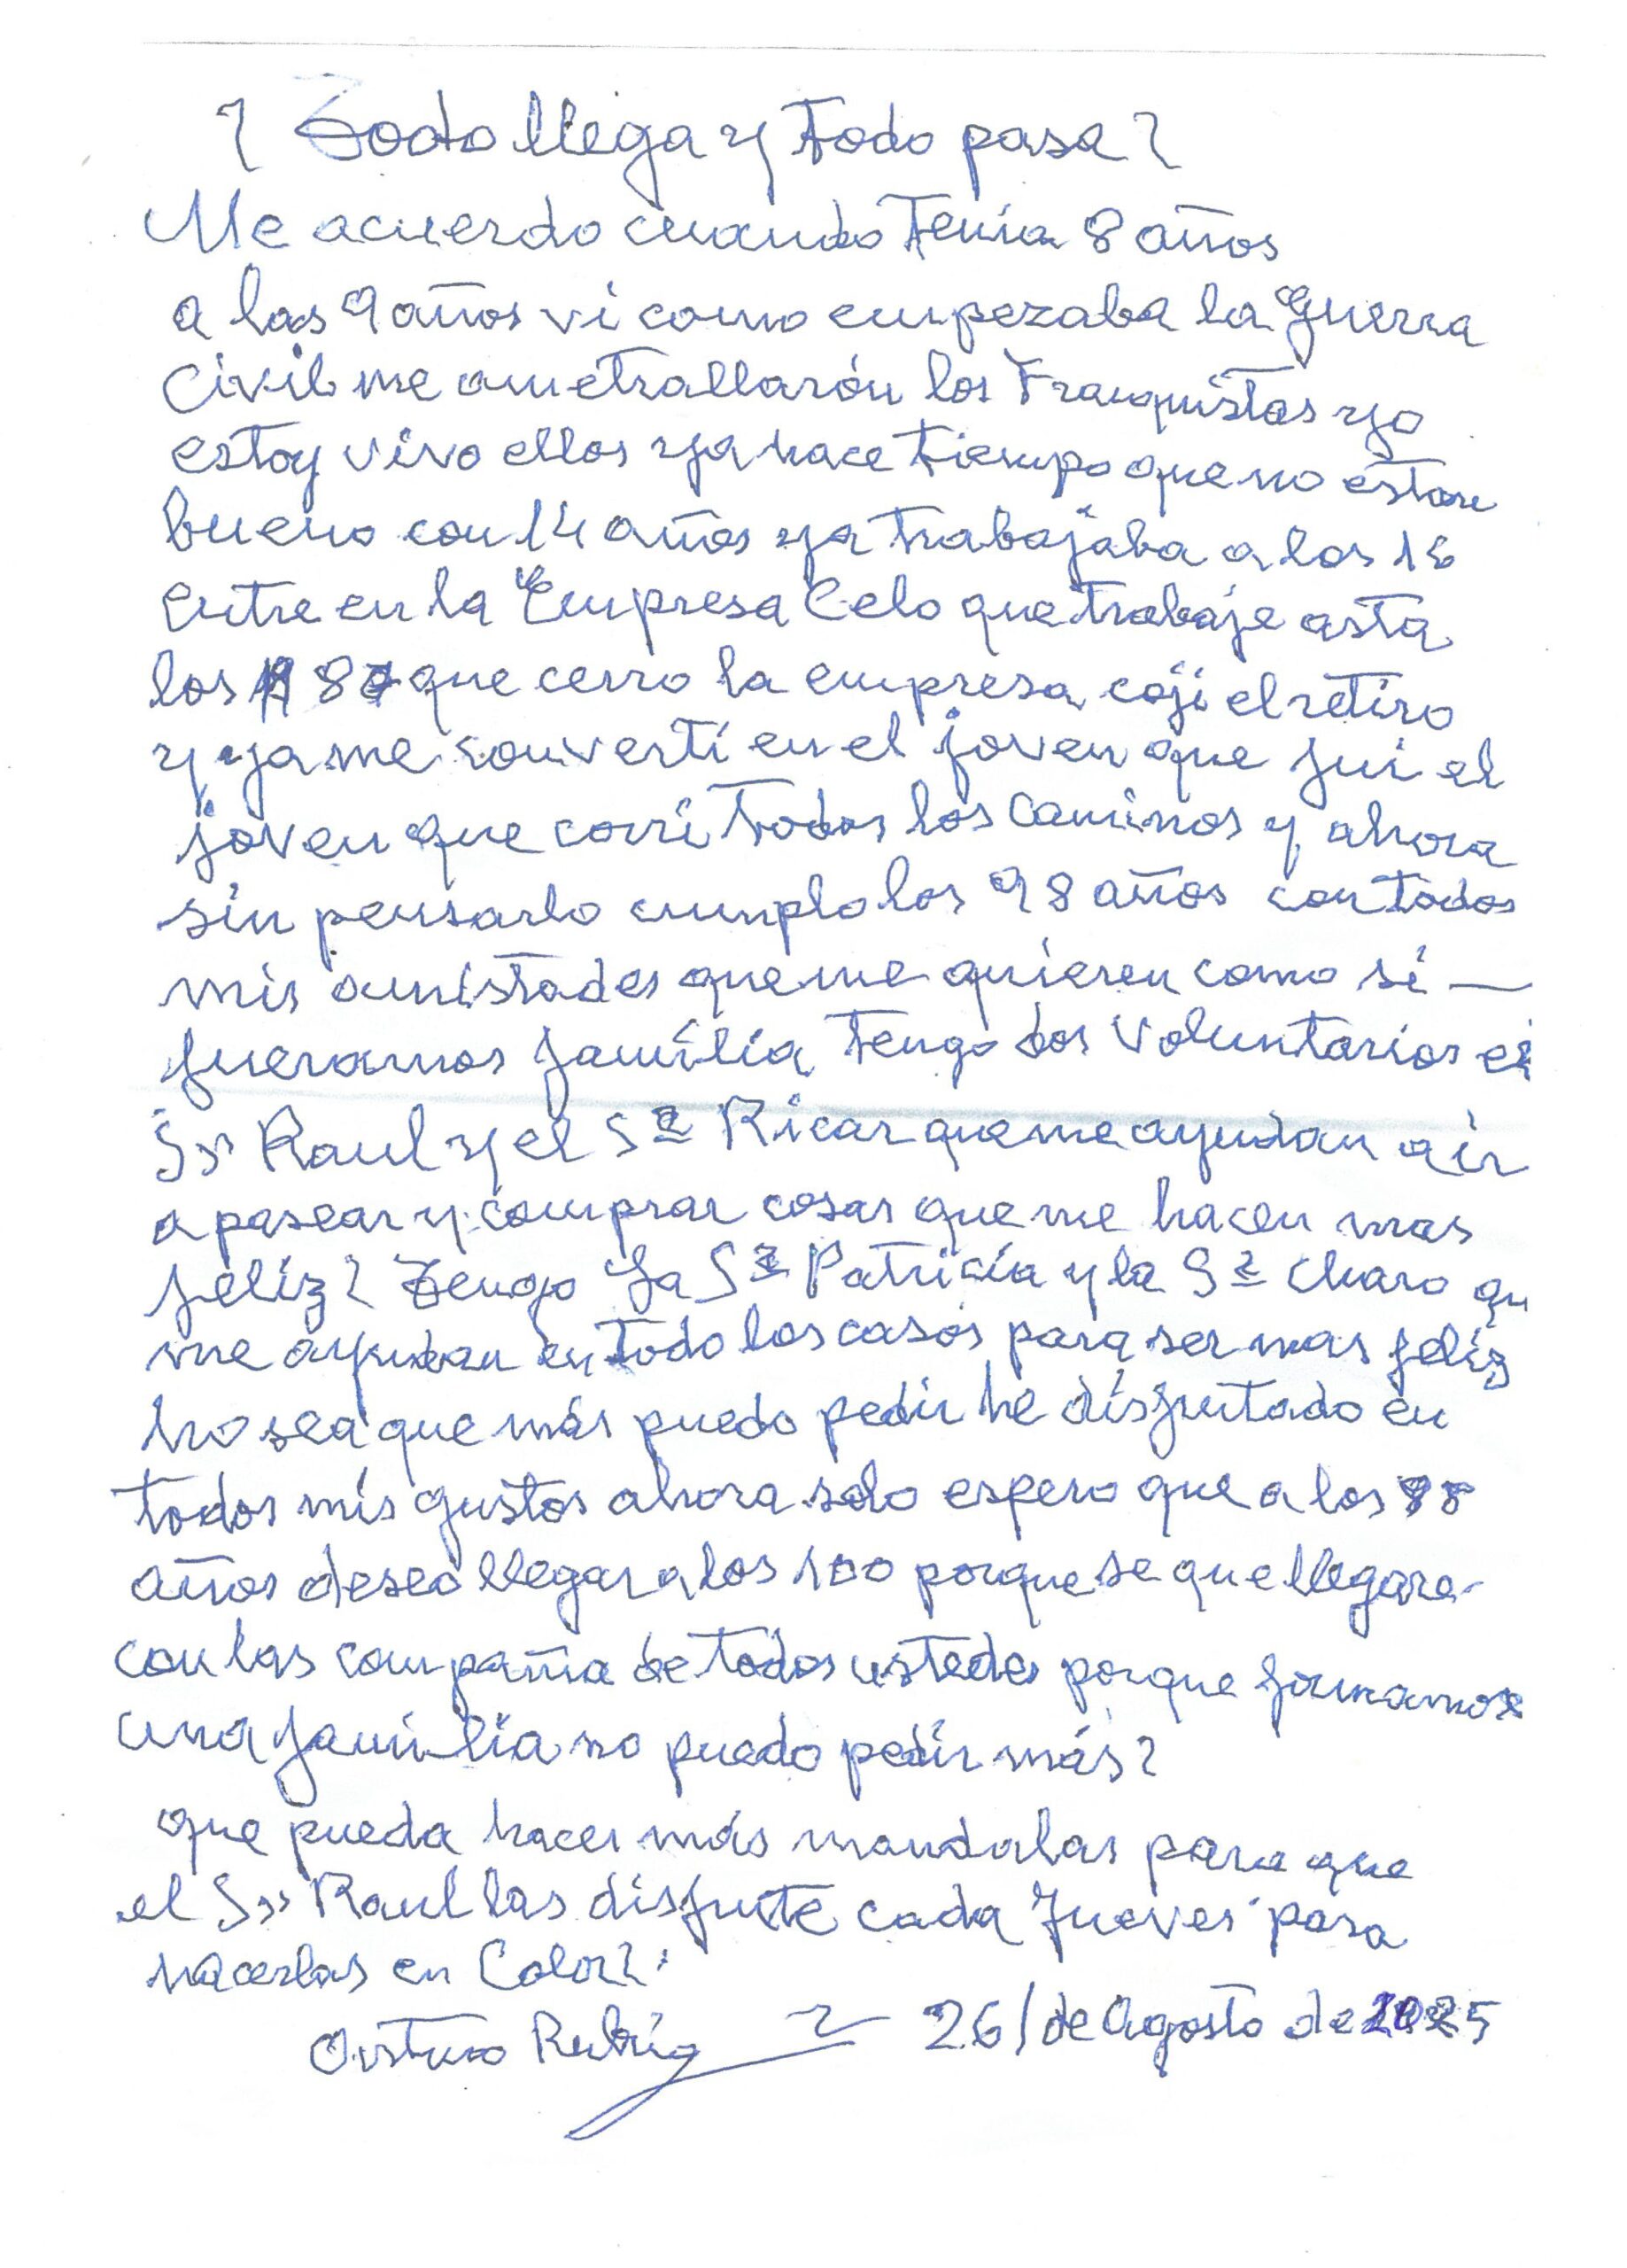 ? Todo llega y todo pasa?
Me acuerdo cuando Tenia 8 años
a las 9 años vi como empezaba la Guerra
Civil me ametrallarón los Franquistas yo
estoy vivo ellos ya hace tiempo que no estan
bueno con 14 años ya trabajaba a los 16
entre en la Empresa Celo que trabaje asta
los que cerro la empresa coji el retiro
y ya me converti en el joven que fui el
joven que corri Todos los caminos y ahora
sin pensarlo cumplo los 98 años con todos
mis amistades que me quieren como si —
fueramos familia Tengo dos Voluntarios el
Sr Raul y el Sr Ricar que me ayudan a ir
a pasear y comprar cosas que me hacen mas
feliz? Tengo la Sra Patricia y la Sra Charo qu
me ayudan en todo los casos para ser mas feliz
ho sea que más puedo pedir he disfrutado en
todos mis gustos ahora solo espero que a los 98
años deseo llegar a los 100 porque se que llegare-
con las compañia de todos ustedes porque formamos
una familia no puedo pedir más?
que pueda hacer más mandalas para que
el Sr Raul las disfrute cada Jueves para
hacerlas en Color?.
Arturo 26/de Agosto de 2025